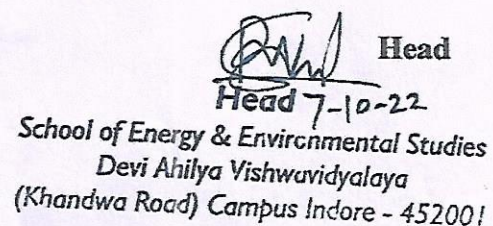 Head
Head 7-10-22
School of Energy & Environmental Studies
Devi Ahilya Vishwavidyalaya
(Khandwa Road) Campus Indore - 452001